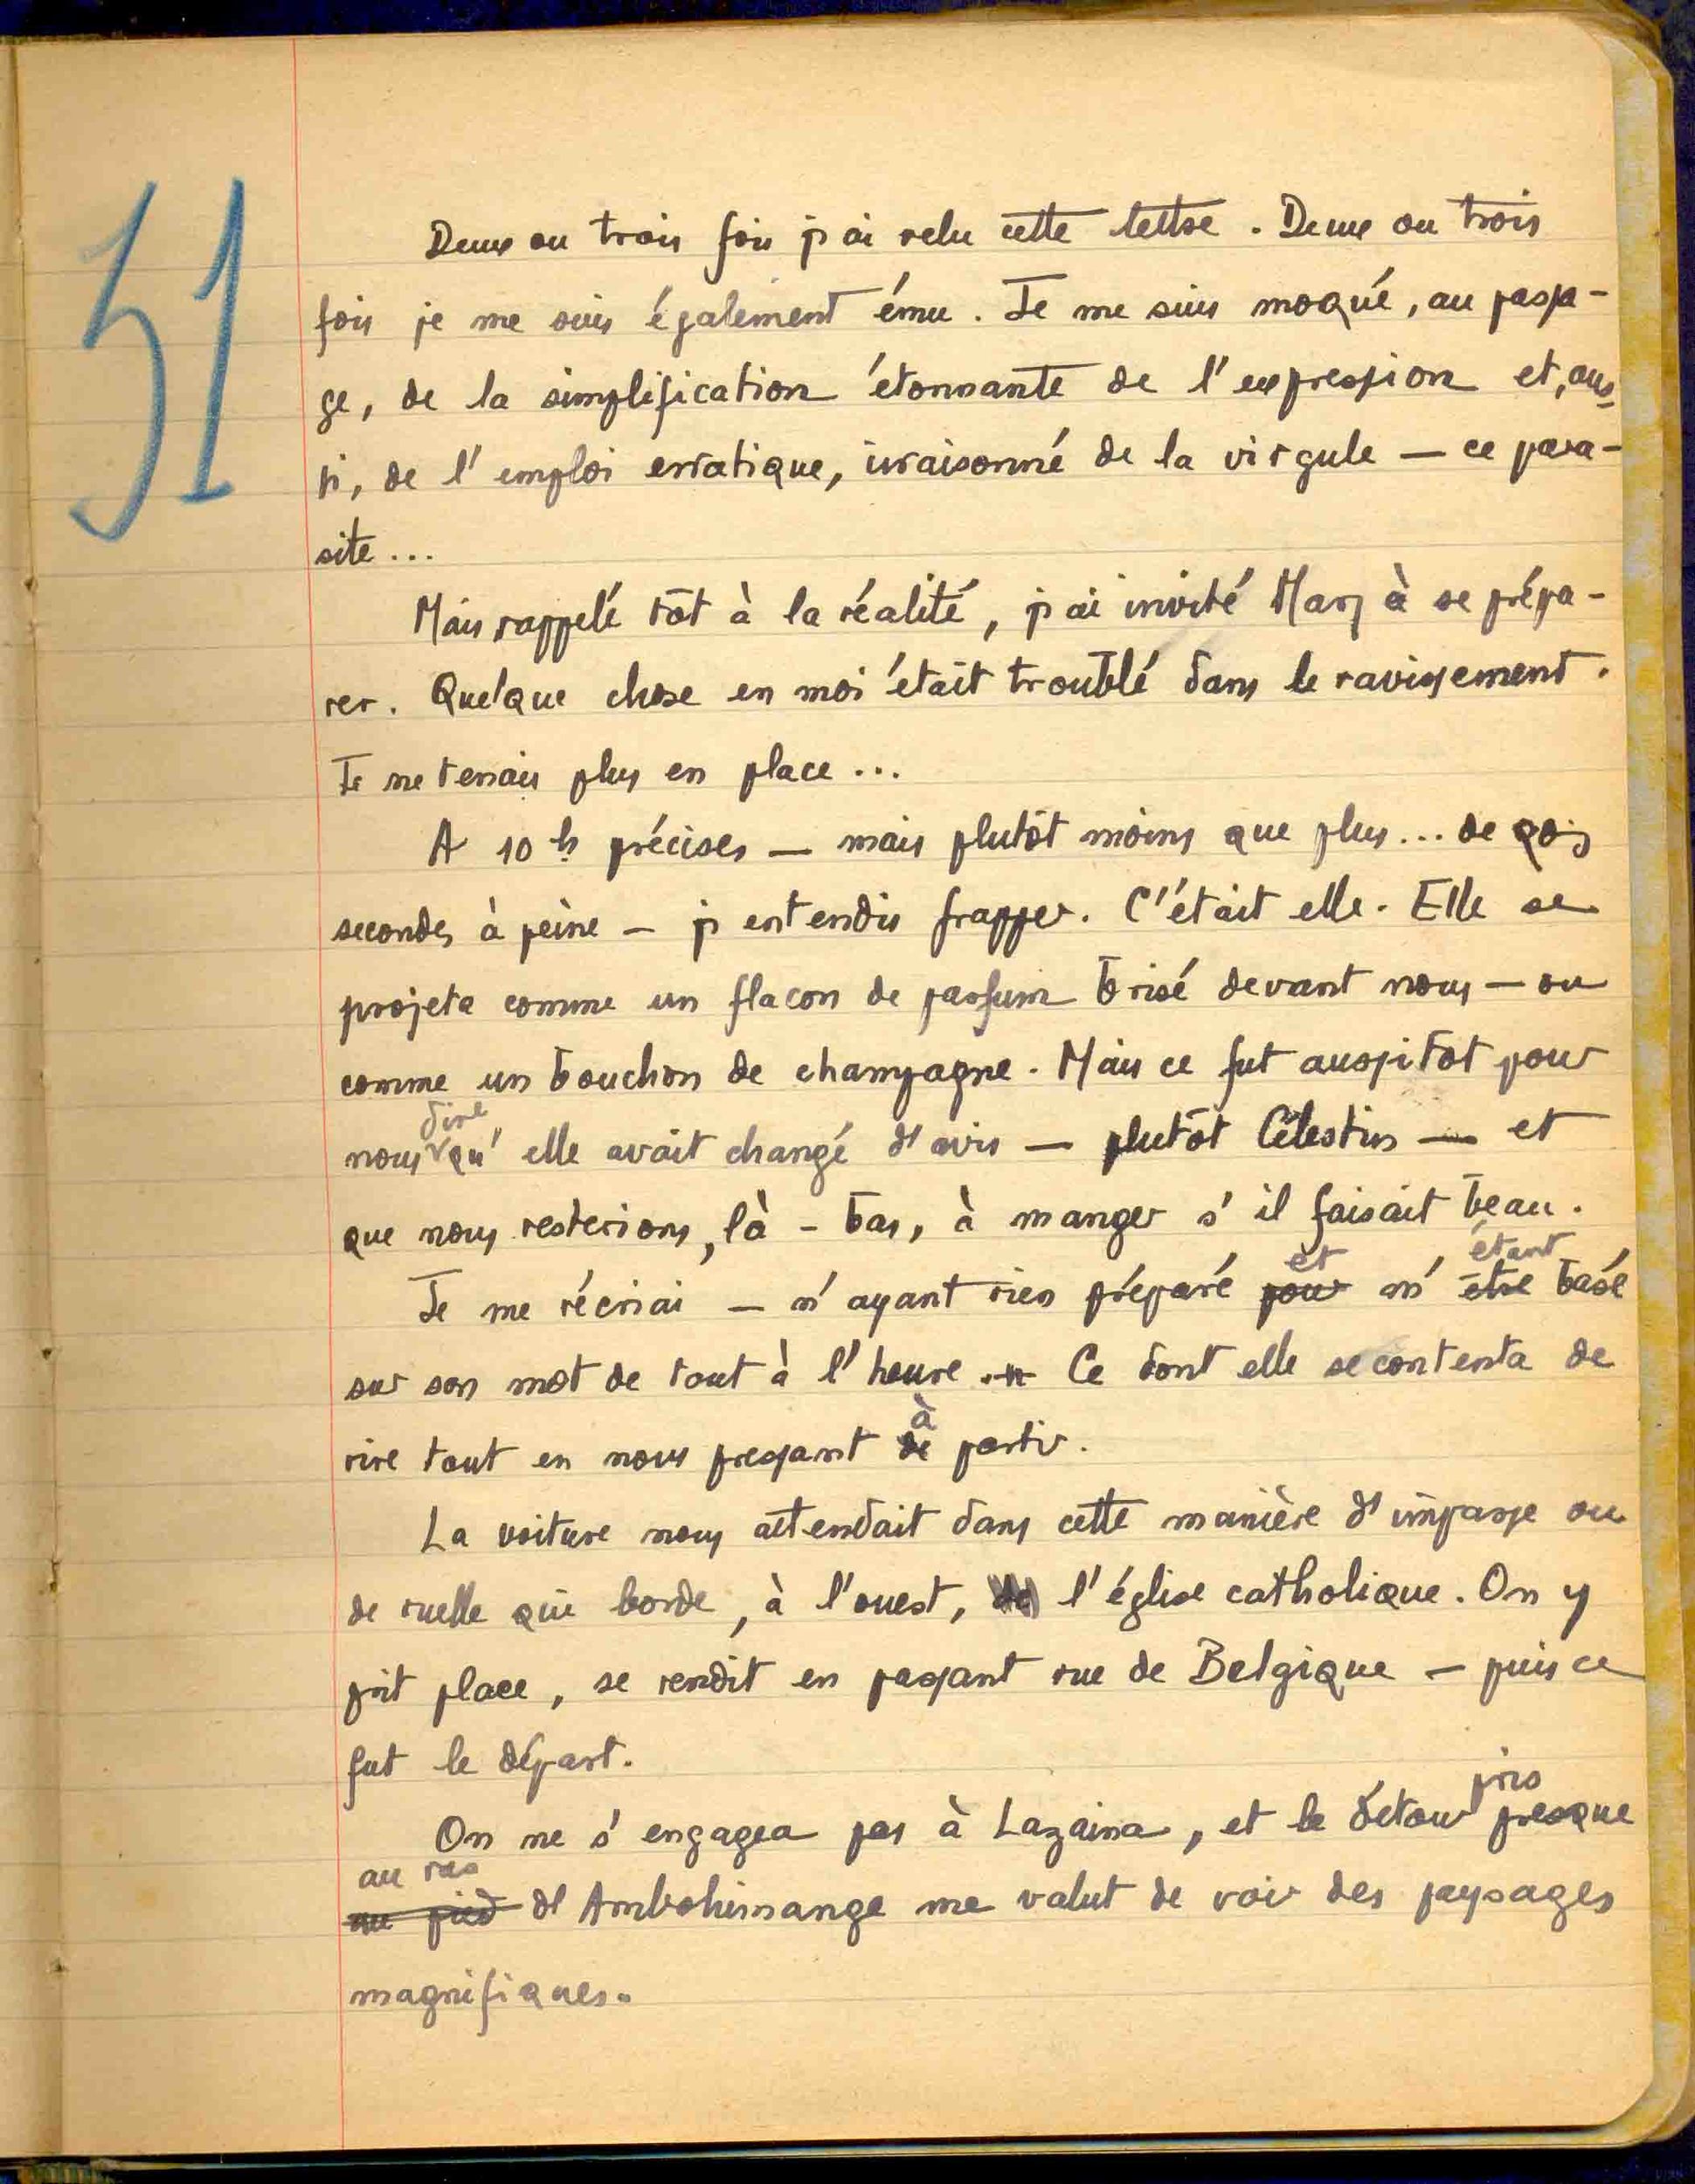 51
Deux ou trois fois j'ai relu cette lettre. Deux ou trois
fois je me suis également ému. Je me suis moqué, au passa-
ge, de la simplification étonnante de l'expression et, aus-
si, de l'emploi erratique, irraisonné de la virgule — ce para-
site...
Mais, rappelé tôt à la réalité, j'ai invité Mary à se prépa-
rer. Quelque chose en moi était troublé dans le ravissement.
Je ne tenais plus en place...
A 10 h précises — mais plutôt moins que plus... de
secondes à peine — j'entendis frapper. C'était elle. Elle se
projeta comme un flacon de parfum brisé devant nous — ou
comme un bouchon de champagne. Mais ce fut aussitôt pour
dire
nous qu'elle avait changé d'avis — plutôt Célestin — et
que nous resterions, là-bas, à manger s'il faisait beau.
et étant
Je me récriai — n'ayant rien préparé pour m'être basé
sur son mot de tout à l'heure. Ce dont elle se contenta de
à
rire tout en nous pressant de partir.
La voiture nous attendait dans cette manière d'impasse ou
de ruelle qui borde, à l'ouest, de l'église catholique. On y
prit place, se rendit en passant rue de Belgique — puis ce
fut le départ.
pris
On ne s'engagea pas à Lazaina, et le détour presque
au ras
au pied d'Ambohimanga me valut de voir des paysages
magnifiques.